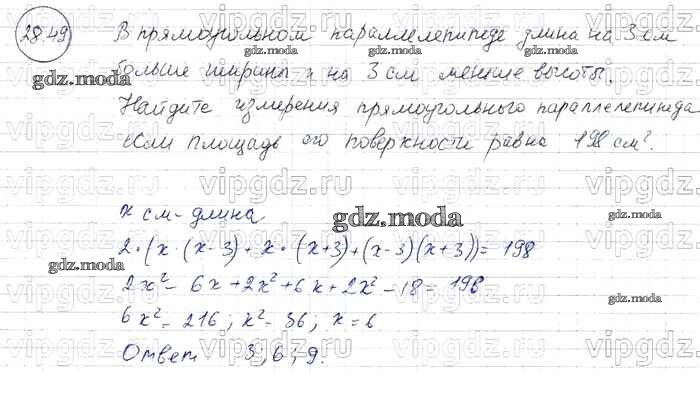 28.49 В прямоугольном параллелепипеде длина на 3 см
больше ширины и на 3 см меньше высоты.
Найдите измерения прямоугольного параллелепипеда
если площадь его поверхности равна 198 см².
x см - длина
2·(x·(x-3)+x·(x+3)+(x-3)(x+3))=198
2x²-6x+2x²+6x+2x²-18=198
6x²=216; x²=36; x=6
Ответ 3; 6; 9.
gdz.moda
vipgdz.ru